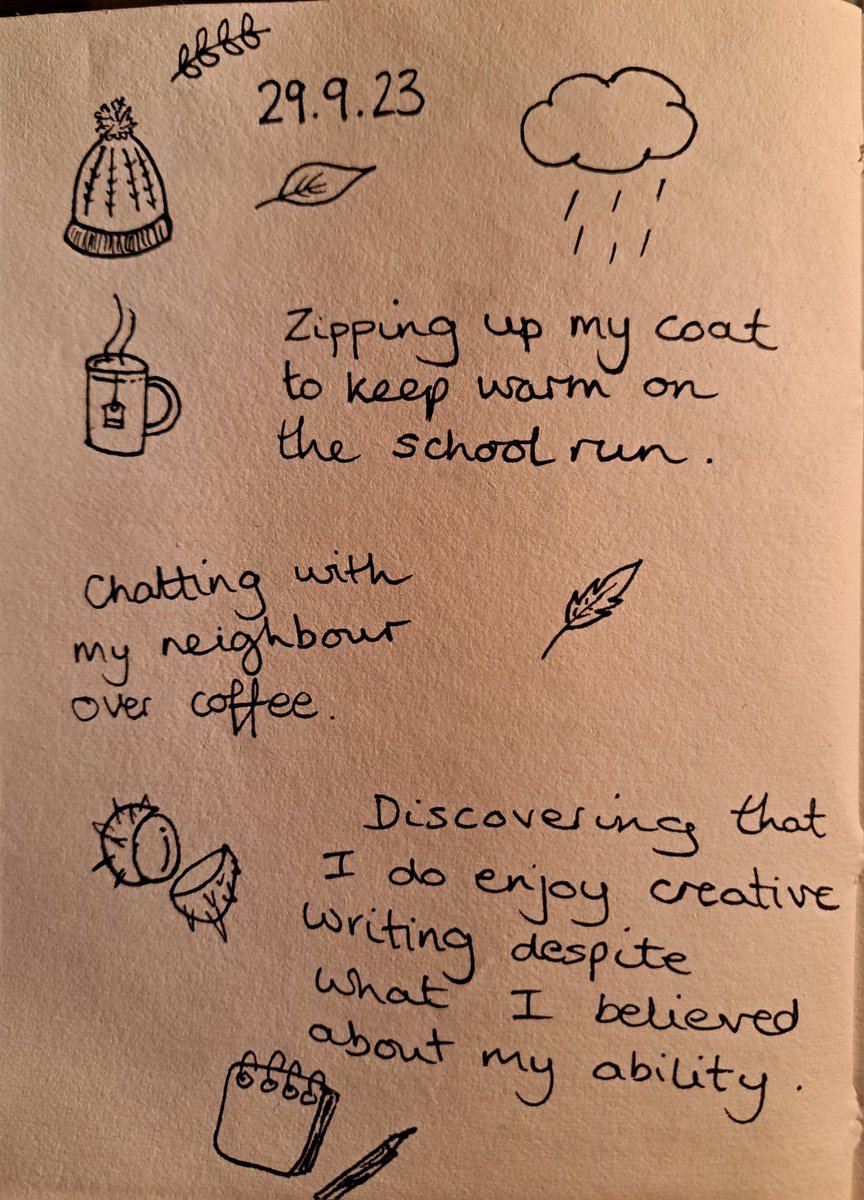 29.9.23
Zipping up my coat
to keep warm on
the school run.
Chatting with
my neighbour
over coffee.
Discovering that
I do enjoy creative
writing despite
what I believed
about my ability.